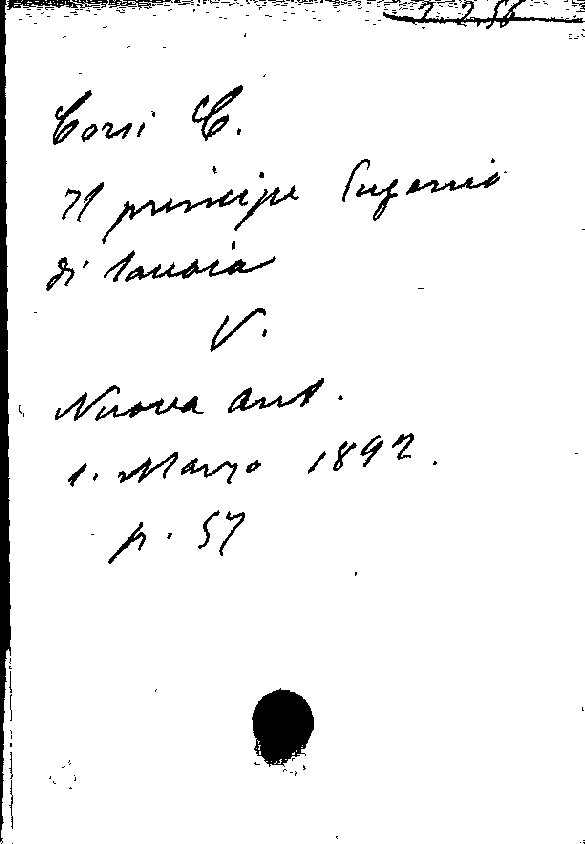 Corsi C.
Il principe Eugenio
di Savoia
V.
Nuova Ant.
1. Marzo 1892.
p. 57